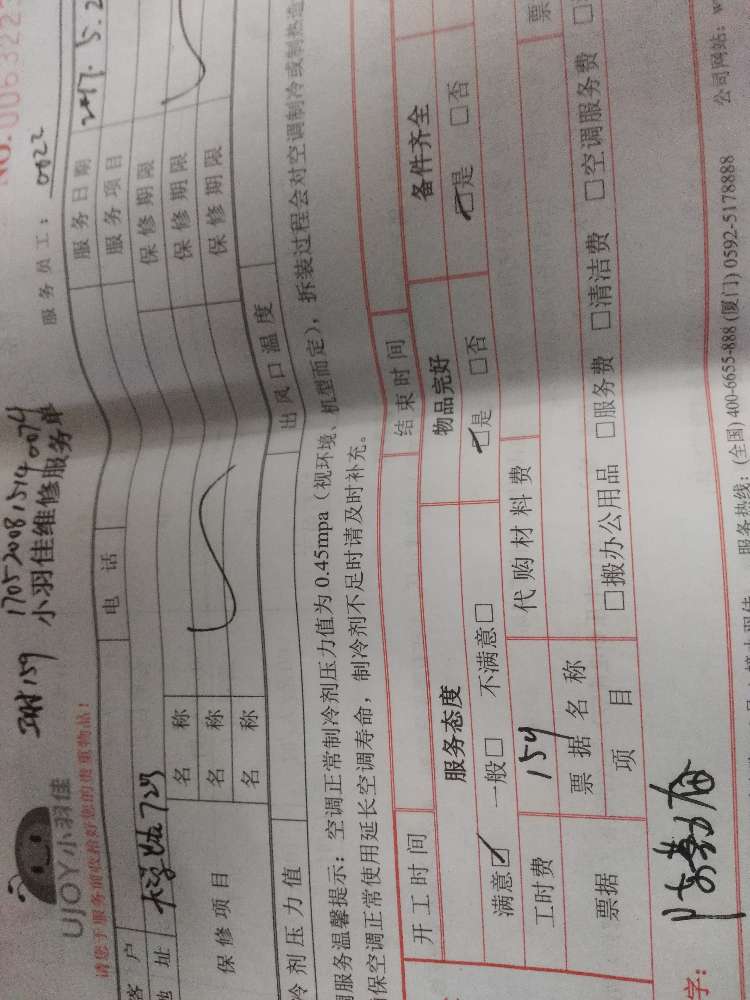 NO.0063223
UJOY小羽佳
159 1705200815140074
小羽佳维修服务单
服务员工: 0022
请您于服务前收拾好您的贵重物品!
客 户 电 话 服务日期 2017.5.2
地 址 服务项目
保修项目 名 称 保修期限
名 称 保修期限
名 称 保修期限
冷剂压力值 出风口温度
调服务温馨提示:空调正常制冷剂压力值为 0.45mpa(视环境、机型而定),拆装过程会对空调制冷或制热造
确保空调正常使用延长空调寿命,制冷剂不足时请及时补充。
开工时间 结束时间
服务态度 物品完好 备件齐全
满意☑ 一般□ 不满意□ ☑是 □否 ☑是 □否
工时费 159 代购材料费 票
票据 票据名称
项 目 □搬办公用品 □服务费 □清洁费 □空调服务费 □
字:
服务热线:(全国) 400-6655-888 (厦门) 0592-5178888 公司网站:w